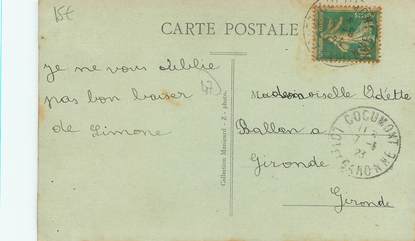 15€
CARTE POSTALE
je ne vous oublie
pas bon baiser
de Simone
Collection Menouard - Z - photo.
Mademoiselle Odette
Ballon a
Gironde
Gironde
COCUMONT
LOT-&-GARONNE
23